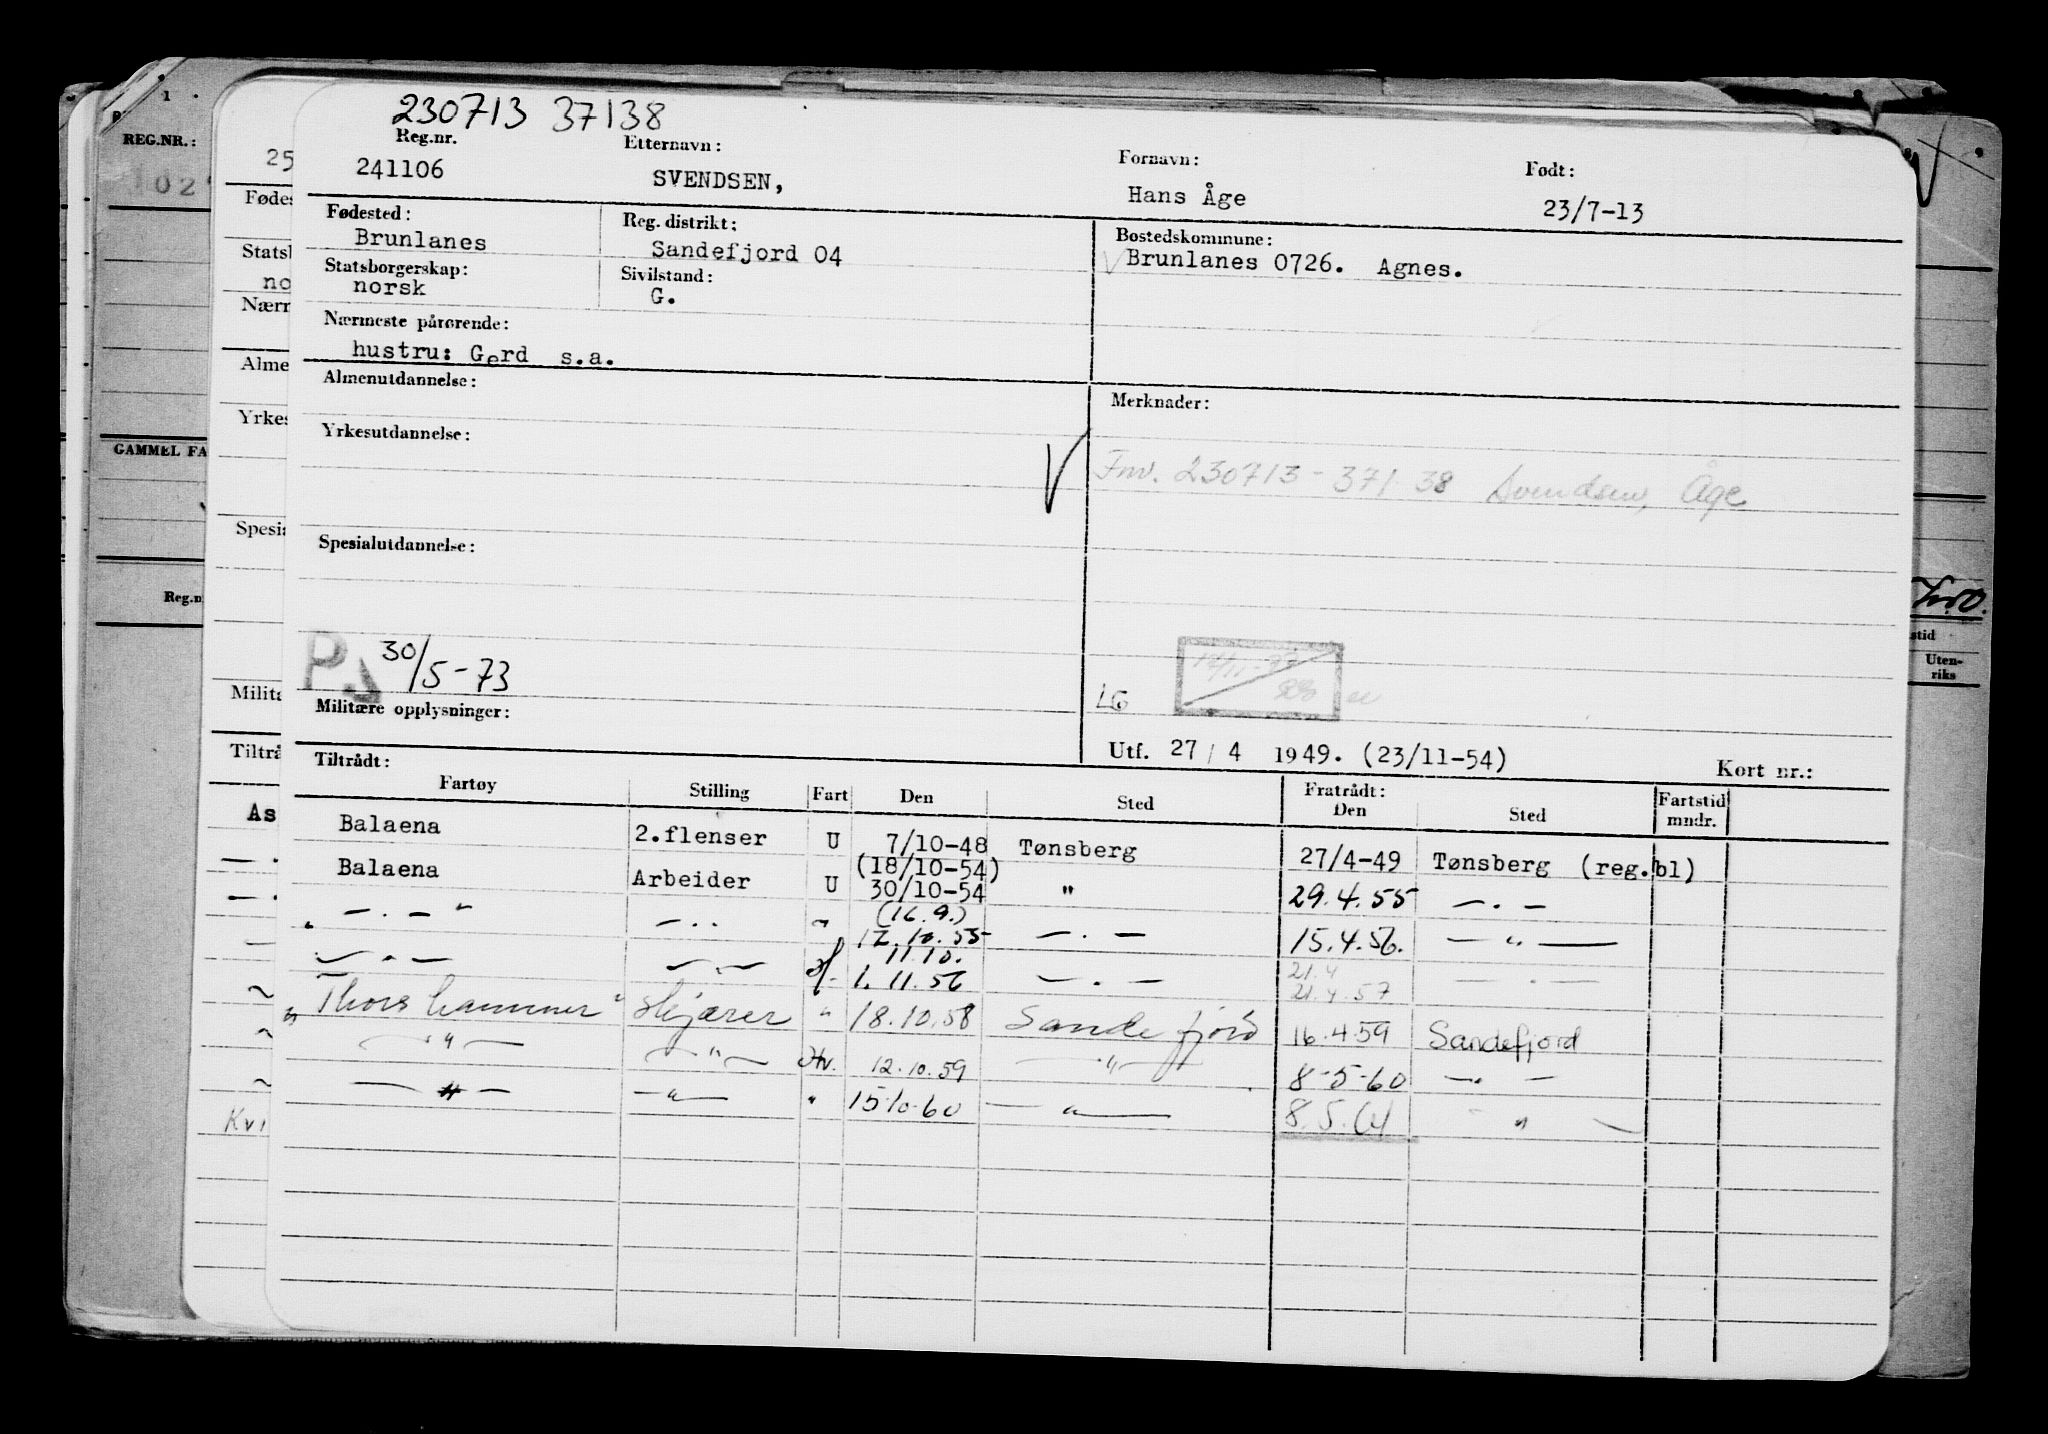 230713 37138
Reg.nr. Etternavn: Fornavn: Født:
241106 SVENDSEN, Hans Åge 23/7-13
Fødested: Reg. distrikt: Bostedskommune:
Brunlanes Sandefjord 04 Brunlanes 0726. Agnes.
Statsborgerskap: Sivilstand:
norsk G.
Nærmeste pårørende:
hustru: Gerd s.a.
Almenutdannelse: Merknader:
Yrkesutdannelse:
Fnv. 230713-37138 Svendsen, Åge
Spesialutdannelse:
30/5-73
LG
Militære opplysninger:
Utf. 27/4 1949. (23/11-54) Kort nr.:
Tiltrådt: Fratrådt:
Fartøy Stilling Fart Den Sted Den Sted Fartstid mndr.
Balaena 2.flenser U 7/10-48 Tønsberg 27/4-49 Tønsberg (reg.bl)
(18/10-54)
Balaena Arbeider U 30/10-54 " 29.4.55 — . —
(16.9.)
" — . — " — . . " 12.10.55 — . — 15.4.56. — " —
11.10. 21.4
— . — — . — 1.11.56 — . — 21.4.57 — . —
"Thorshammer" skjærer " 18.10.58 Sandefjord 16.4.59 Sandefjord
— " — — " — Hv. 12.10.59 — " — 8-5-60 — . —
— " — — " — " 15.10.60 — " — 8.5.61 — " —
REG.NR.:
GAMMEL FA
Reg.n
25
Fødes
Statsb
no
Nærm
Alme
Yrkes
Spesia
Milita
Tiltrå
As
Kvi
stid
Uten-
riks